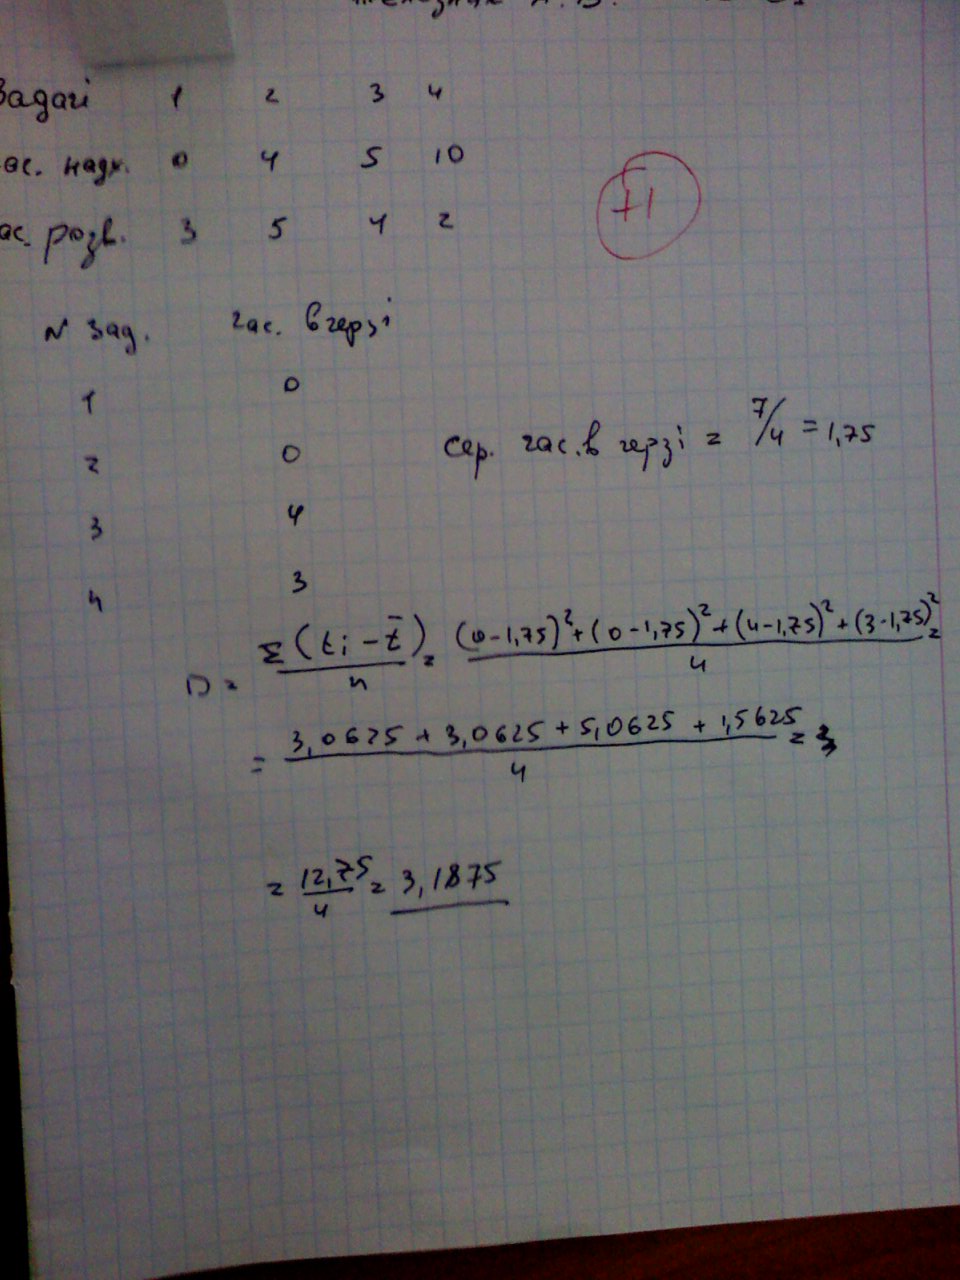 Задачі 1 2 3 4
час. надх. 0 4 5 10
час. розв. 3 5 4 2
+1
N зад. час. в черзі
1 0
2 0
3 4
4 3
Сер. час. в черзі = 7/4 = 1,75
D = Σ(ti - t̄)/n = ((0-1,75)²+(0-1,75)²+(4-1,75)²+(3-1,75)²)/4 =
= (3,0625 + 3,0625 + 5,0625 + 1,5625)/4 = 3
= 12,75/4 = 3,1875